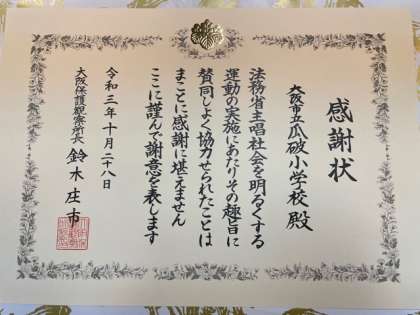 感謝状
大阪市立瓜破小学校 殿
法務省主唱社会を明るくする
運動の実施にあたりその趣旨に
賛同しよく協力せられたことは
まことに感謝に堪えません
ここに謹んで謝意を表します
令和三年十月二十八日
大阪保護観察所長 鈴木庄市